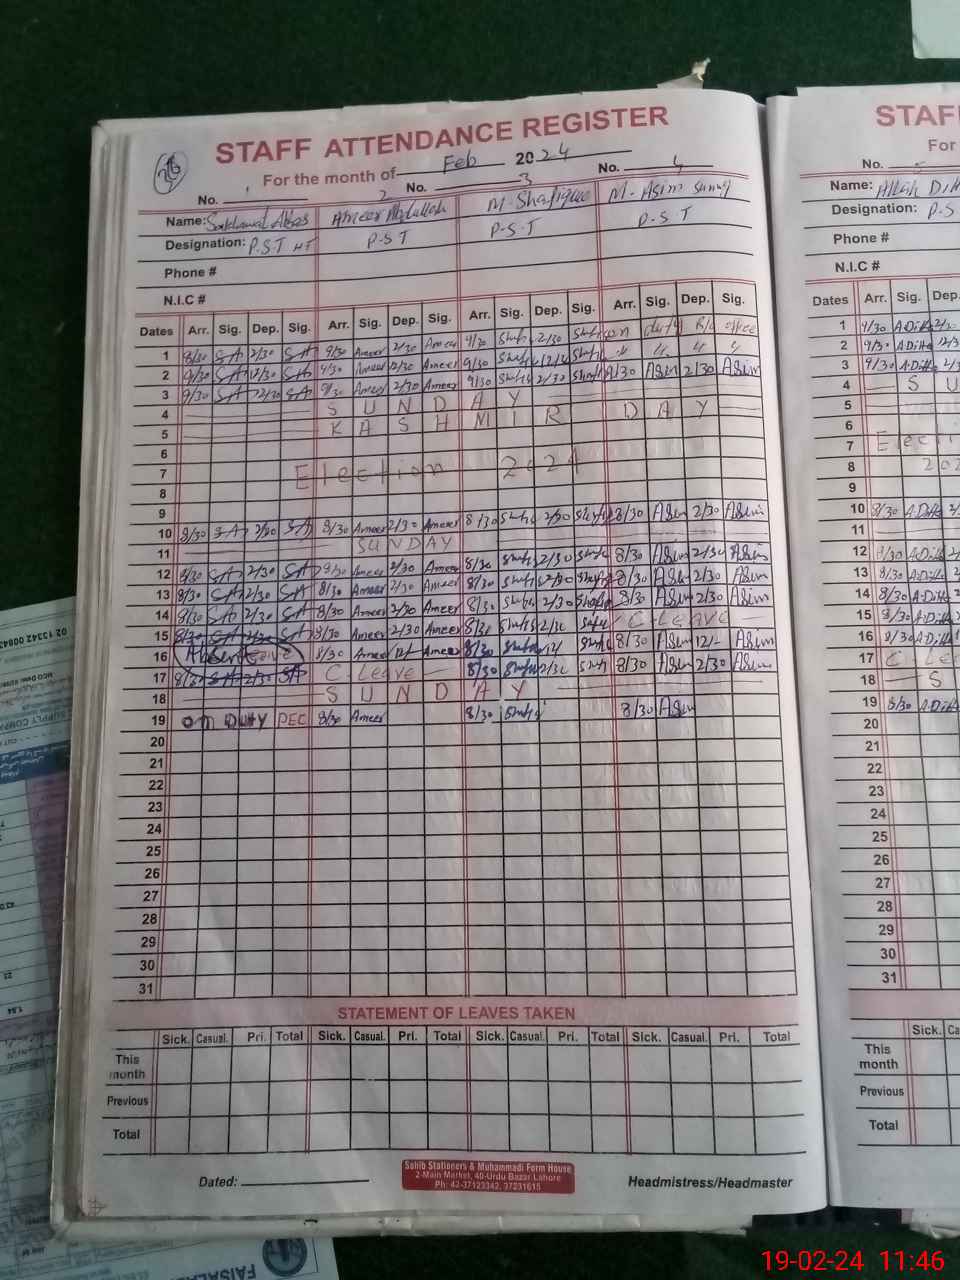 STAFF ATTENDANCE REGISTER
For the month of Feb 2024
No. 1 No. 2 3 No. 4
Name: Abbas Ameer Abdullah M. Shafique M. Asim
Designation: P.S.T HT P.S.T P.S.T P.S.T
Phone #
N.I.C #
Dates Arr. Sig. Dep. Sig. Arr. Sig. Dep. Sig. Arr. Sig. Dep. Sig. Arr. Sig. Dep. Sig.
1 8/30 SA 2/30 SA 9/30 Ameer 2/30 Ameer 9/30 Shafs 2/30 Shafs on duty R/o office
2 9/30 SA 12/30 SA 9/30 Ameer 12/30 Ameer 9/30 Shafs 12/30 Shafs 〃 〃 〃 〃
3 9/30 SA 2/30 SA 9/30 Ameer 2/30 Ameer 9/30 Shafs 2/30 Shafs 9/30 Asim 2/30 Asim
4 SUNDAY
5 KASHMIR DAY
6
7 Election 2024
8
9
10 8/30 SA 2/30 SA 8/30 Ameer 2/30 Ameer 8/30 Shafs 2/30 Shafs 8/30 Asim 2/30 Asim
11 SUNDAY
12 8/30 SA 2/30 SA 8/30 Ameer 2/30 Ameer 8/30 Shafs 2/30 Shafs 8/30 Asim 2/30 Asim
13 8/30 SA 2/30 SA 8/30 Ameer 2/30 Ameer 8/30 Shafs 2/30 Shafs 8/30 Asim 2/30 Asim
14 8/30 SA 2/30 SA 8/30 Ameer 2/30 Ameer 8/30 Shafs 2/30 Shafs 8/30 Asim 2/30 Asim
15 8/30 SA 2/30 SA 8/30 Ameer 2/30 Ameer 8/30 Shafs 2/30 Shafs C-Leave
16 Absent Leave 8/30 Ameer 12/- Ameer 8/30 Shafs 12/- Shafs 8/30 Asim 12/- Asim
17 8/30 SA 2/30 SA C-Leave 8/30 Shafs 2/30 Shafs 8/30 Asim 2/30 Asim
18 SUNDAY
19 on DUTY PEC 8/30 Ameer 8/30 Shafs 8/30 Asim
20
21
22
23
24
25
26
27
28
29
30
31
STATEMENT OF LEAVES TAKEN
Sick. Casual. Pri. Total Sick. Casual. Pri. Total Sick. Casual. Pri. Total Sick. Casual. Pri. Total
This month
Previous
Total
Dated:
Sahib Stationers & Muhammadi Form House
2-Main Market, 40-Urdu Bazar Lahore
Ph: 42-37123342, 37231615
Headmistress/Headmaster
STAF
For
No. 5
Name: Allah Ditt
Designation: P.S
Phone #
N.I.C #
Dates Arr. Sig. Dep.
1 9/30 A.Ditta 2/30
2 9/30 A.Ditta 12/3
3 9/30 A.Ditta
4 S U
5
6
7 Electi
8 202
9
10 8/30 A.Ditta
11
12 8/30 A.Ditta
13 8/30 A.Ditta
14 8/30 A.Ditta
15 8/30 A.Ditta
16 8/30 A.Ditta
17 C-Lea
18 S
19 8/30 A.Ditta
20
21
22
23
24
25
26
27
28
29
30
31
Sick. Ca
This month
Previous
Total
FAISALA
19-02-24 11:46